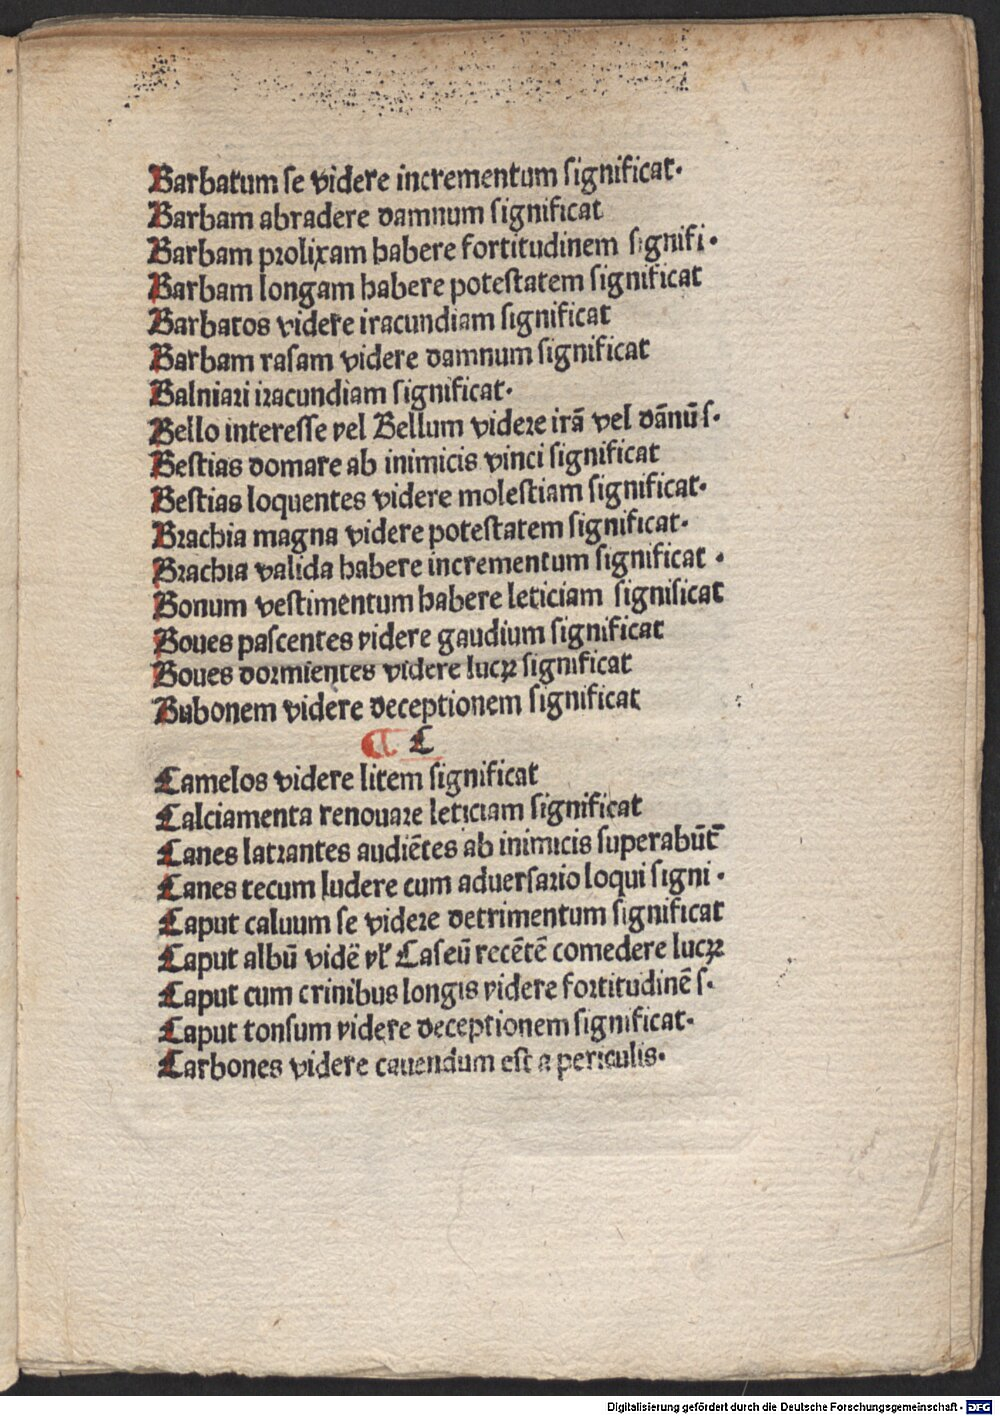 Barbatum se videre incrementum significat.
Barbam abradere damnum significat
Barbam prolixam habere fortitudinem signifi.
Barbam longam habere potestatem significat
Barbatos videre iracundiam significat
Barbam rasam videre damnum significat
Balniari iracundiam significat.
Bello interesse vel Bellum videre irā vel dānū s.
Bestias domare ab inimicis vinci significat
Bestias loquentes videre molestiam significat.
Brachia magna videre potestatem significat.
Brachia valida habere incrementum significat .
Bonum vestimentum habere leticiam significat
Boues pascentes videre gaudium significat
Boues dormientes videre lucꝝ significat
Bubonem videre deceptionem significat
¶ C
Camelos videre litem significat
Calciamenta renouare leticiam significat
Canes latrantes audiētes ab inimicis superabūt̄
Canes tecum ludere cum aduersario loqui signi .
Caput caluum se videre detrimentum significat
Caput albū vidē vl' Caseū recētē comedere lucꝝ
Caput cum crinibus longis videre fortitudinē s.
Caput tonsum videre deceptionem significat.
Carbones videre cauendum est a periculis.
Digitalisierung gefördert durch die Deutsche Forschungsgemeinschaft - DFG